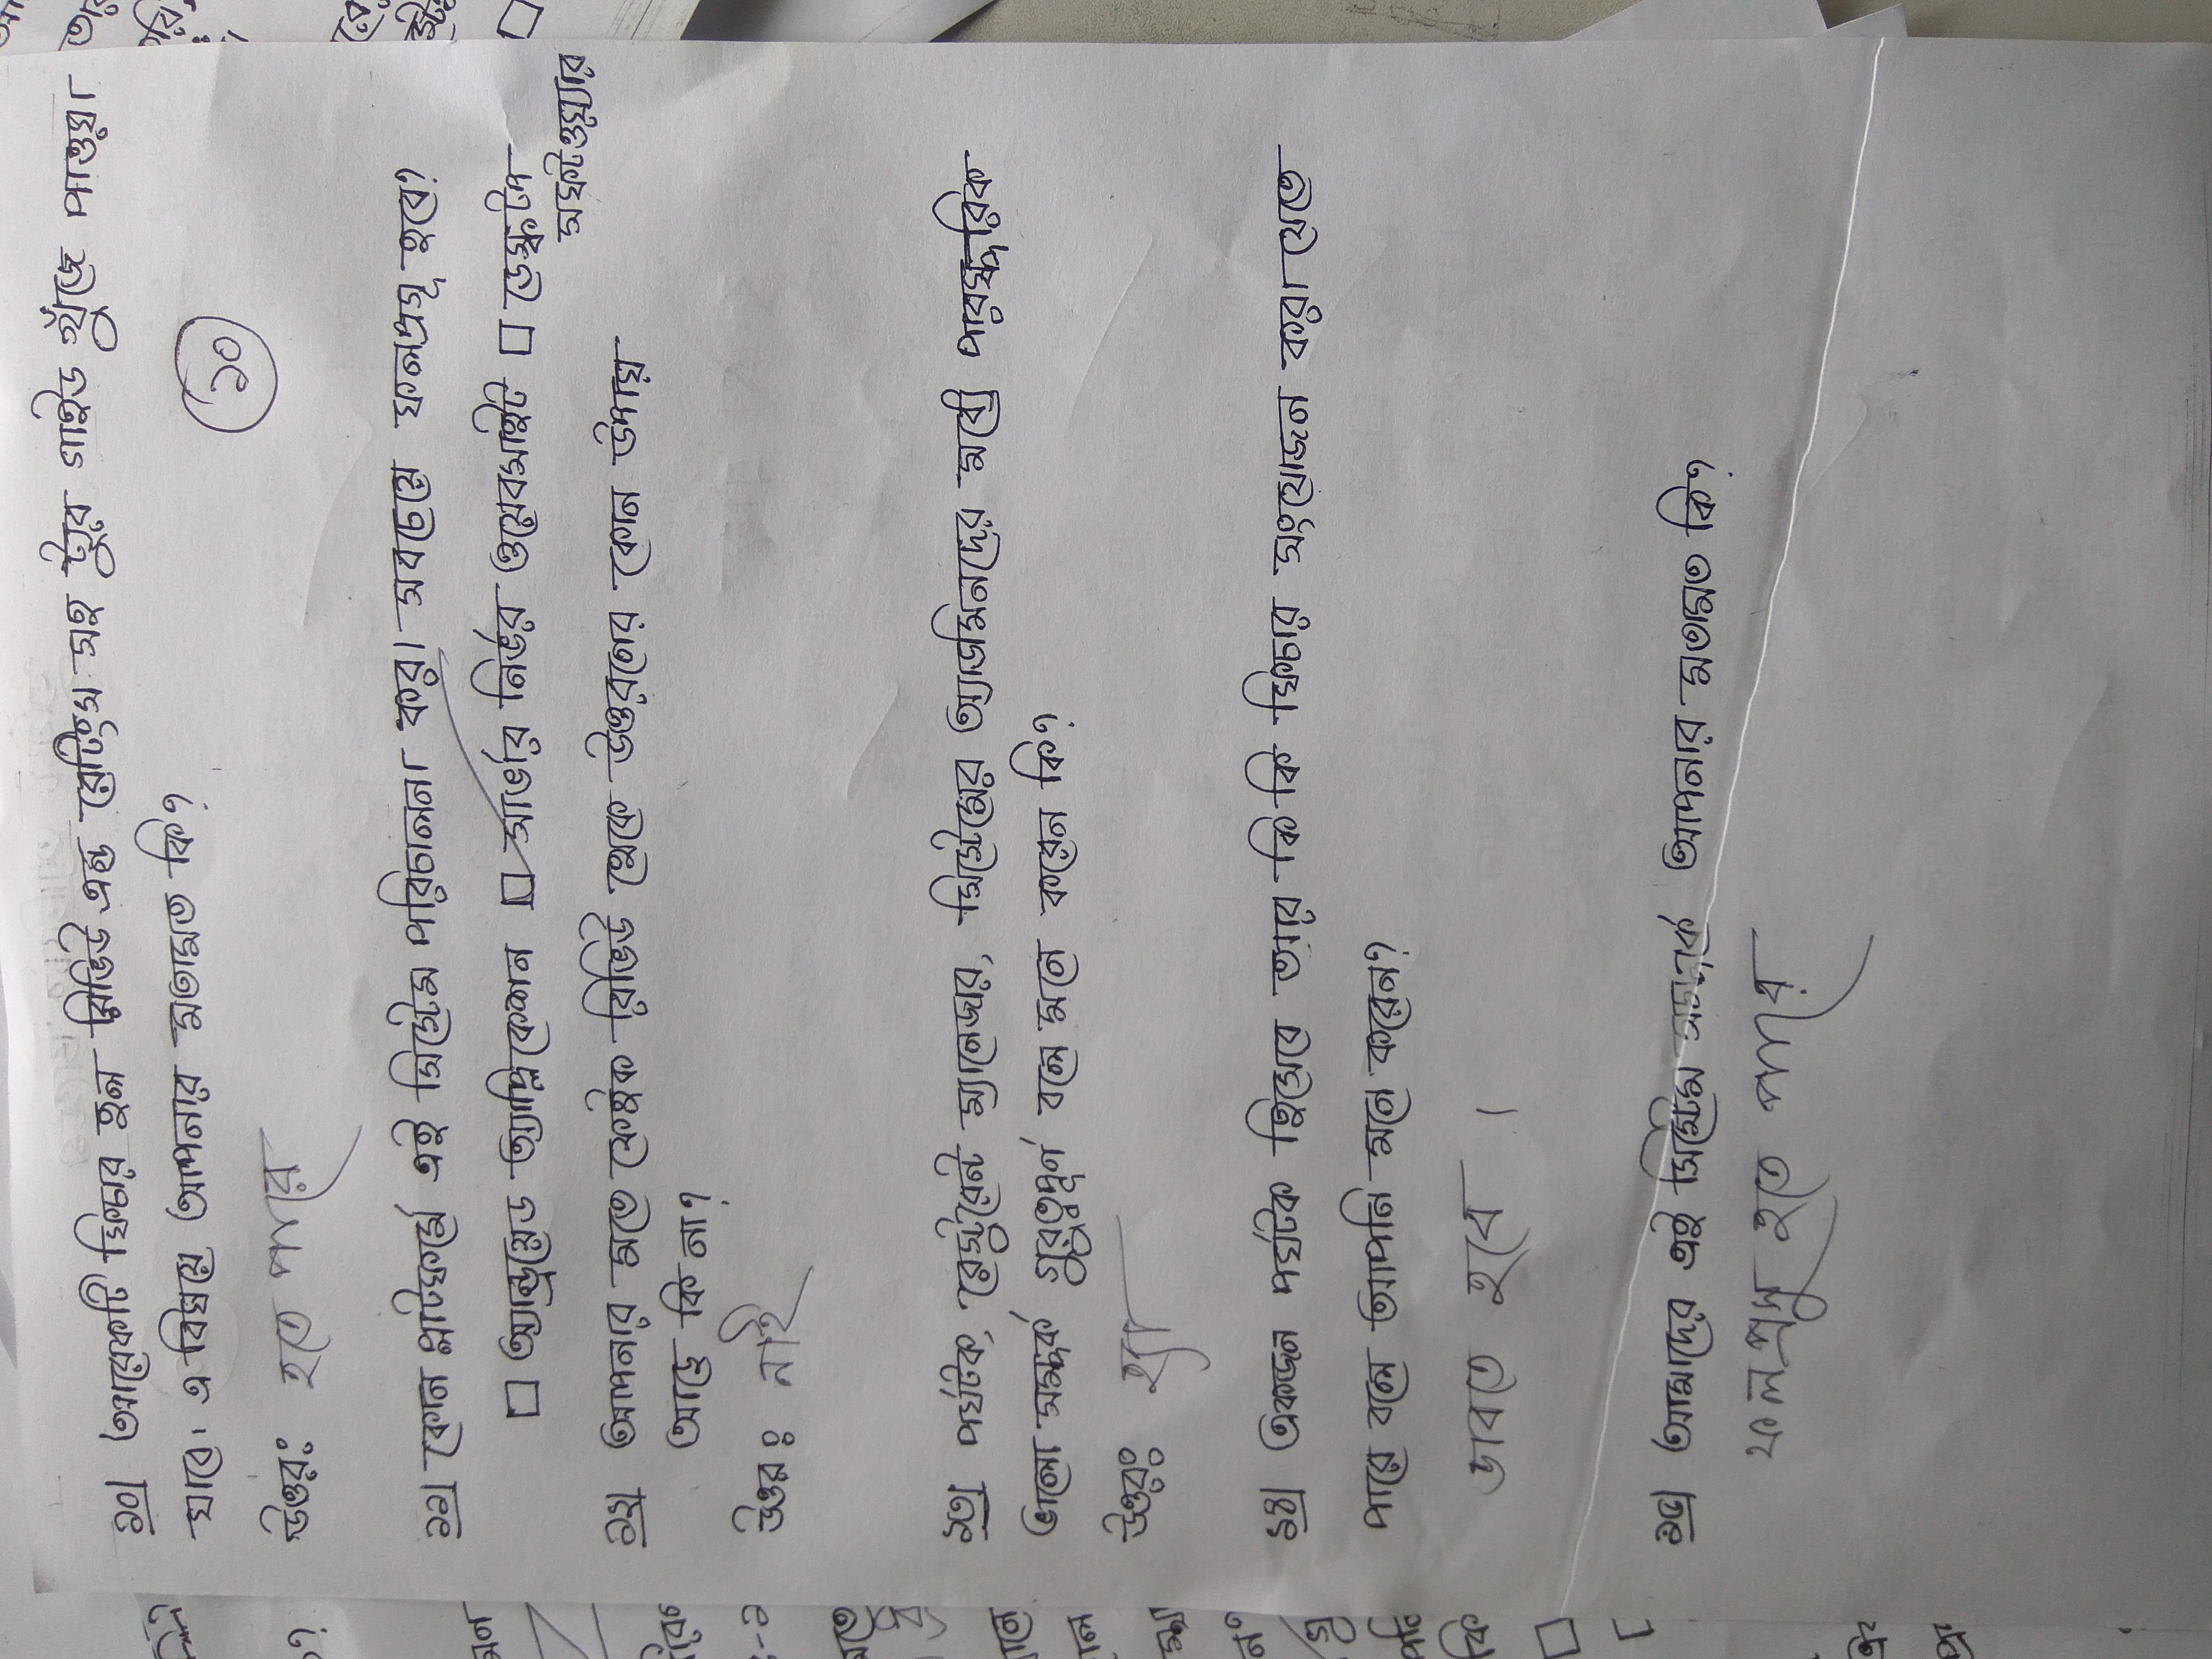 ১০। আরেকটি ফিচার হল রিভিউ এন্ড রেটিংস সহ ট্যুর গাইড খুঁজে পাওয়া
যাবে। এ বিষয়ে আপনার মতামত কি?
১০
উত্তর: হতে পারে
১১। কোন প্লাটফর্মে এই সিস্টেম পরিচালনা করা সবচেয়ে ফলপ্রসূ হবে?
□ অ্যান্ড্রয়েড অ্যাপ্লিকেশন □ সার্ভার নির্ভর ওয়েবসাইট □ ডেস্কটপ
সফটওয়্যার
১২। আপনার মতে ফেইক রিভিউ থেকে উত্তরণের কোন উপায়
আছে কি না?
উত্তরঃ নাই
১৩। পর্যটক, রেস্টুরেন্ট ম্যানেজার, সিস্টেমের অ্যাডমিনদের মধ্যে পারস্পরিক
ভালো সম্পর্ক গুরুত্বপূর্ণ বলে মনে করেন কি?
উত্তরঃ হ্যা
১৪। একজন পর্যটক হিসেবে আর কি কি ফিচার সংযোজন করা যেতে
পারে বলে আপনি মনে করেন?
ভাবতে হবে।
১৫। আমাদের এই সিস্টেম সম্পর্কে আপনার মতামত কি?
ফলপ্রসু হতে পারে